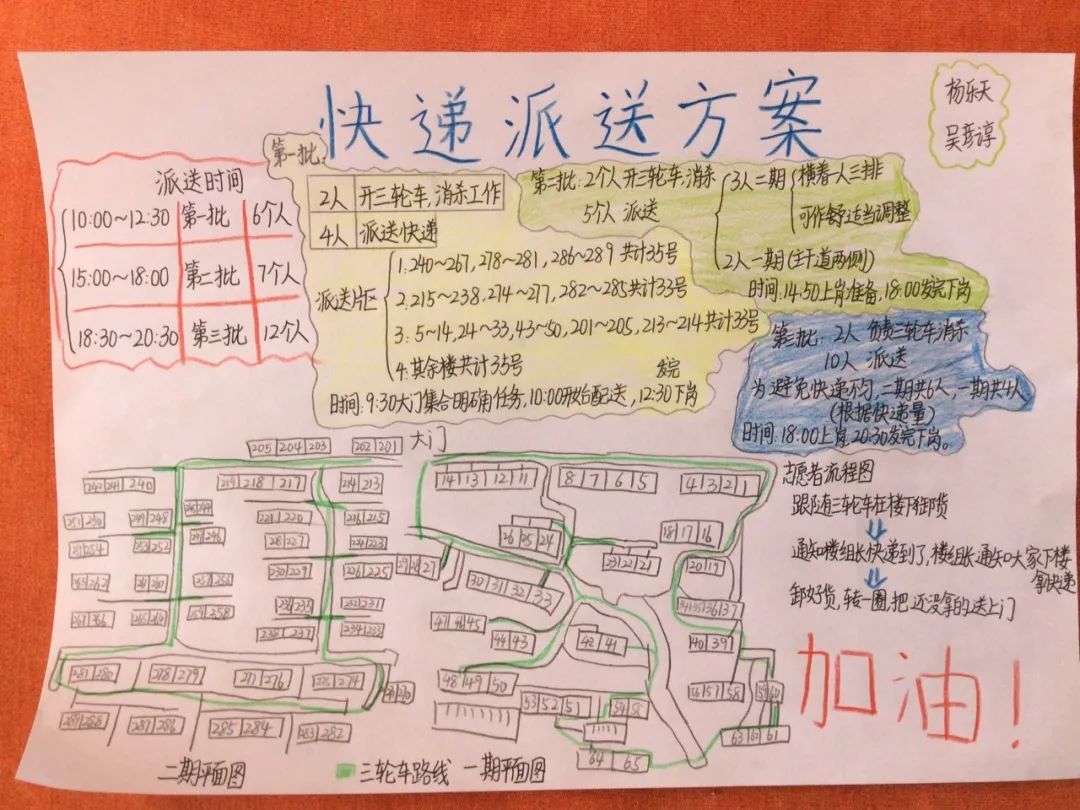 快递派送方案
杨乐天
吴彦谆
派送时间
10:00~12:30 第一批 6个人
15:00~18:00 第二批 7个人
18:30~20:30 第三批 12个人
第一批:
2人 开三轮车,消杀工作
4人 派送快递
派送片区
1.240~267,278~281,286~289共计35号
2.215~238,274~277,282~285共计33号
3.5~14,24~33,43~50,201~205,213~214共计33号
4.其余楼共计35号
时间:9:30大门集合明确任务,10:00开始配送,12:30发完下岗
2个人开三轮车,消杀
5个人派送
3人二期
横着一人三排
可作舒适当调整
2人一期(主干道两侧)
时间:14:50上岗准备,18:00发完下岗
2人 负责三轮车消杀
10人 派送
为避免快递不匀,二期共6人,一期共4人
(根据快递量)
时间:18:00上岗,20:30发完下岗。
大门
205 204 203
202 201
242 241 240
219 218 217
214 213
14 13 12 11
8 7 6 5
4 3 2 1
249 248
221 220
216 215
26 25 24
18 17 16
253 252
224 223
23 22 21
20 19
230 229
226 225
29 28 27
30 31 32 33
232 231
234 233
47 46 45
44 43
42 41
40 39
281 280
278 279
277 276
275 274
48 49 50
53 52 51
56 57 58
287 286
285 284
283 282
64 65
63 62 61
二期平面图
三轮车路线
一期平面图
志愿者流程图
跟随三轮车在楼下卸货
通知楼组长快递到了,楼组长通知大家下楼
拿快递
卸好货,转一圈,把还没拿的送上门
加油!